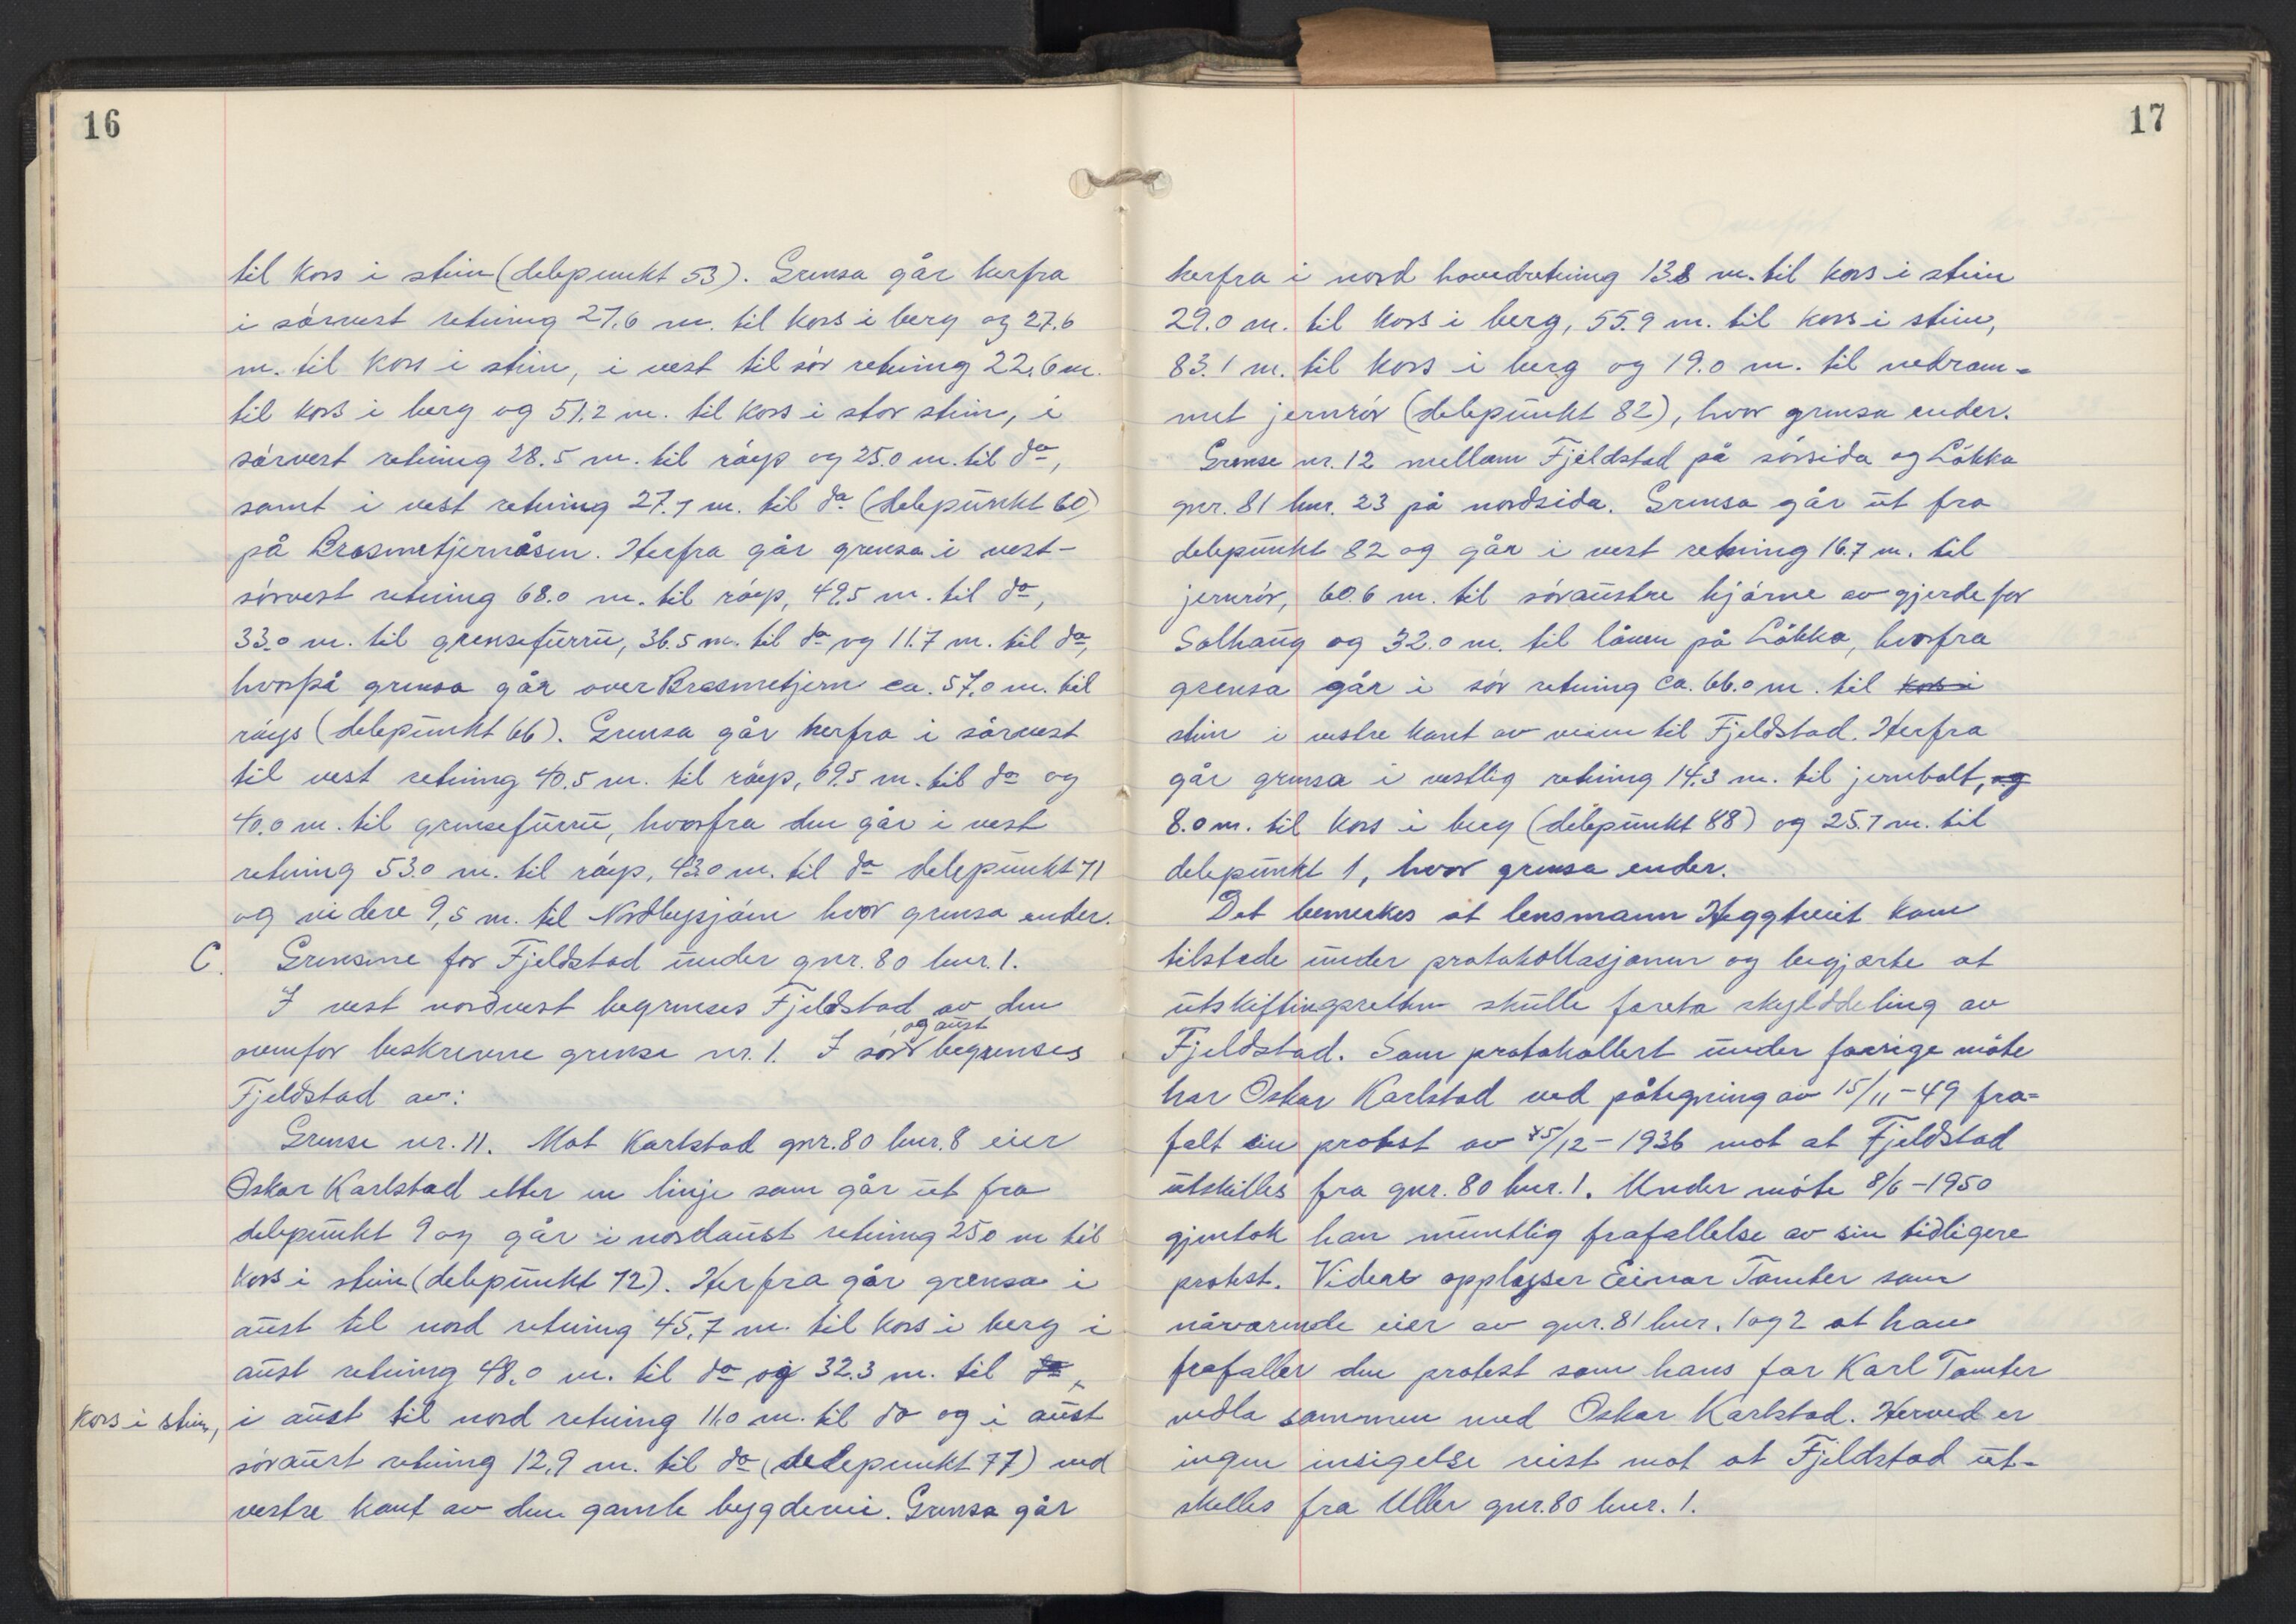 16
til kors i stein (delepunkt 53). Grensa går herfra
i sørvest retning 27.6 m. til kors i berg og 27.6
m. til kors i stein, i vest til sør retning 22.6 m.
til kors i berg og 51.2 m. til kors i stor stein, i
sørvest retning 28.5 m. til røys og 25.0 m. til do,
samt i vest retning 27.7 m. til do (delepunkt 60)
på Brasmetjernåsen. Herfra går grensa i vest-
sørvest retning 68.0 m. til røys, 49.5 m. til do,
33.0 m. til grensefurru, 36.5 m. til do og 11.7 m. til do,
hvorpå grensa går over Brasmetjern ca. 57.0 m. til
røys (delepunkt 66). Grensa går herfra i sørvest
til vest retning 40.5 m. til røys, 69.5 m. til do og
40.0 m. til grensefurru, hvorfra den går i vest
retning 53.0 m. til røys, 43.0 m. til do delepunkt 71
og videre 9,5 m. til Nordbysjøen hvor grensa ender.
C. Grensene for Fjeldstad under gnr. 80 bnr. 1.
I vest nordvest begrenses Fjeldstad av den
ovenfor beskrevne grense nr. 1. I sør og aust begrenses
Fjeldstad av:
Grense nr. 11. Mot Karlstad gnr. 80 bnr. 8 eier
Oskar Karlstad etter en linje som går ut fra
delepunkt 9 og går i nordaust retning 25.0 m til
kors i stein (delepunkt 72). Herfra går grensa i
aust til nord retning 45,7 m. til kors i berg i
aust retning 48.0 m. til do og 32.3 m. til do
kors i stein, i aust til nord retning 11.0 m. til do og i aust
søraust retning 12.9 m. til do (delepunkt 77) ved
vestre kant av den gamle bygdevei. Grensa går
17
herfra i nord hovedretning 13.8 m. til kors i stein
29.0 m. til kors i berg, 55.9 m. til kors i stein,
83.1 m. til kors i berg og 19.0 m. til nedram-
met jernrør (delepunkt 82), hvor grensa ender.
Grense nr. 12 mellom Fjeldstad på sørsida og Løkka
gnr. 81 bnr. 23 på nordsida. Grensa går ut fra
delepunkt 82 og går i vest retning 16.7 m. til
jernrør, 60.6 m. til søraustre hjørne av gjerde for
Solhaug og 32.0 m. til låven på Løkka, hvorfra
grensa går i sør retning ca. 66.0 m. til kors i
stein i vestre kant av veien til Fjeldstad. Herfra
går grensa i vestlig retning 14.3 m. til jernbolt, og
8.0 m. til kors i berg (delepunkt 88) og 25.7 m. til
delepunkt 1, hvor grensa ender.
Det bemerkes at lensmann Heggtveit kom
tilstede under protokollasjonen og begjærte at
utskiftingsretten skulle foreta skylddeling av
Fjeldstad. Som protokollert under forrige møte
har Oskar Karlstad ved påtegning av 15/11-49 fra-
falt sin protest av 15/12-1936 mot at Fjeldstad
utskilles fra gnr. 80 bnr. 1. Under møte 8/6-1950
gjentok han muntlig frafallelse av sin tidligere
protest. Videre opplyser Einar Tomter som
nåværende eier av gnr. 81 bnr. 1 og 2 at han
frafaller den protest som hans far Karl Tomter
nedla sammen med Oskar Karlstad. Herved er
ingen insigelse reist mot at Fjeldstad ut-
skilles fra Uller gnr. 80 bnr. 1.